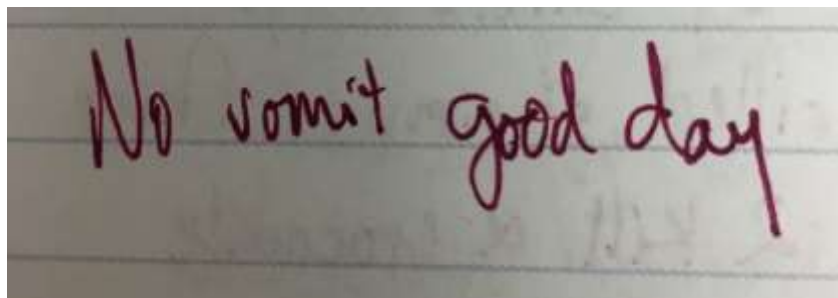 No vomit good day